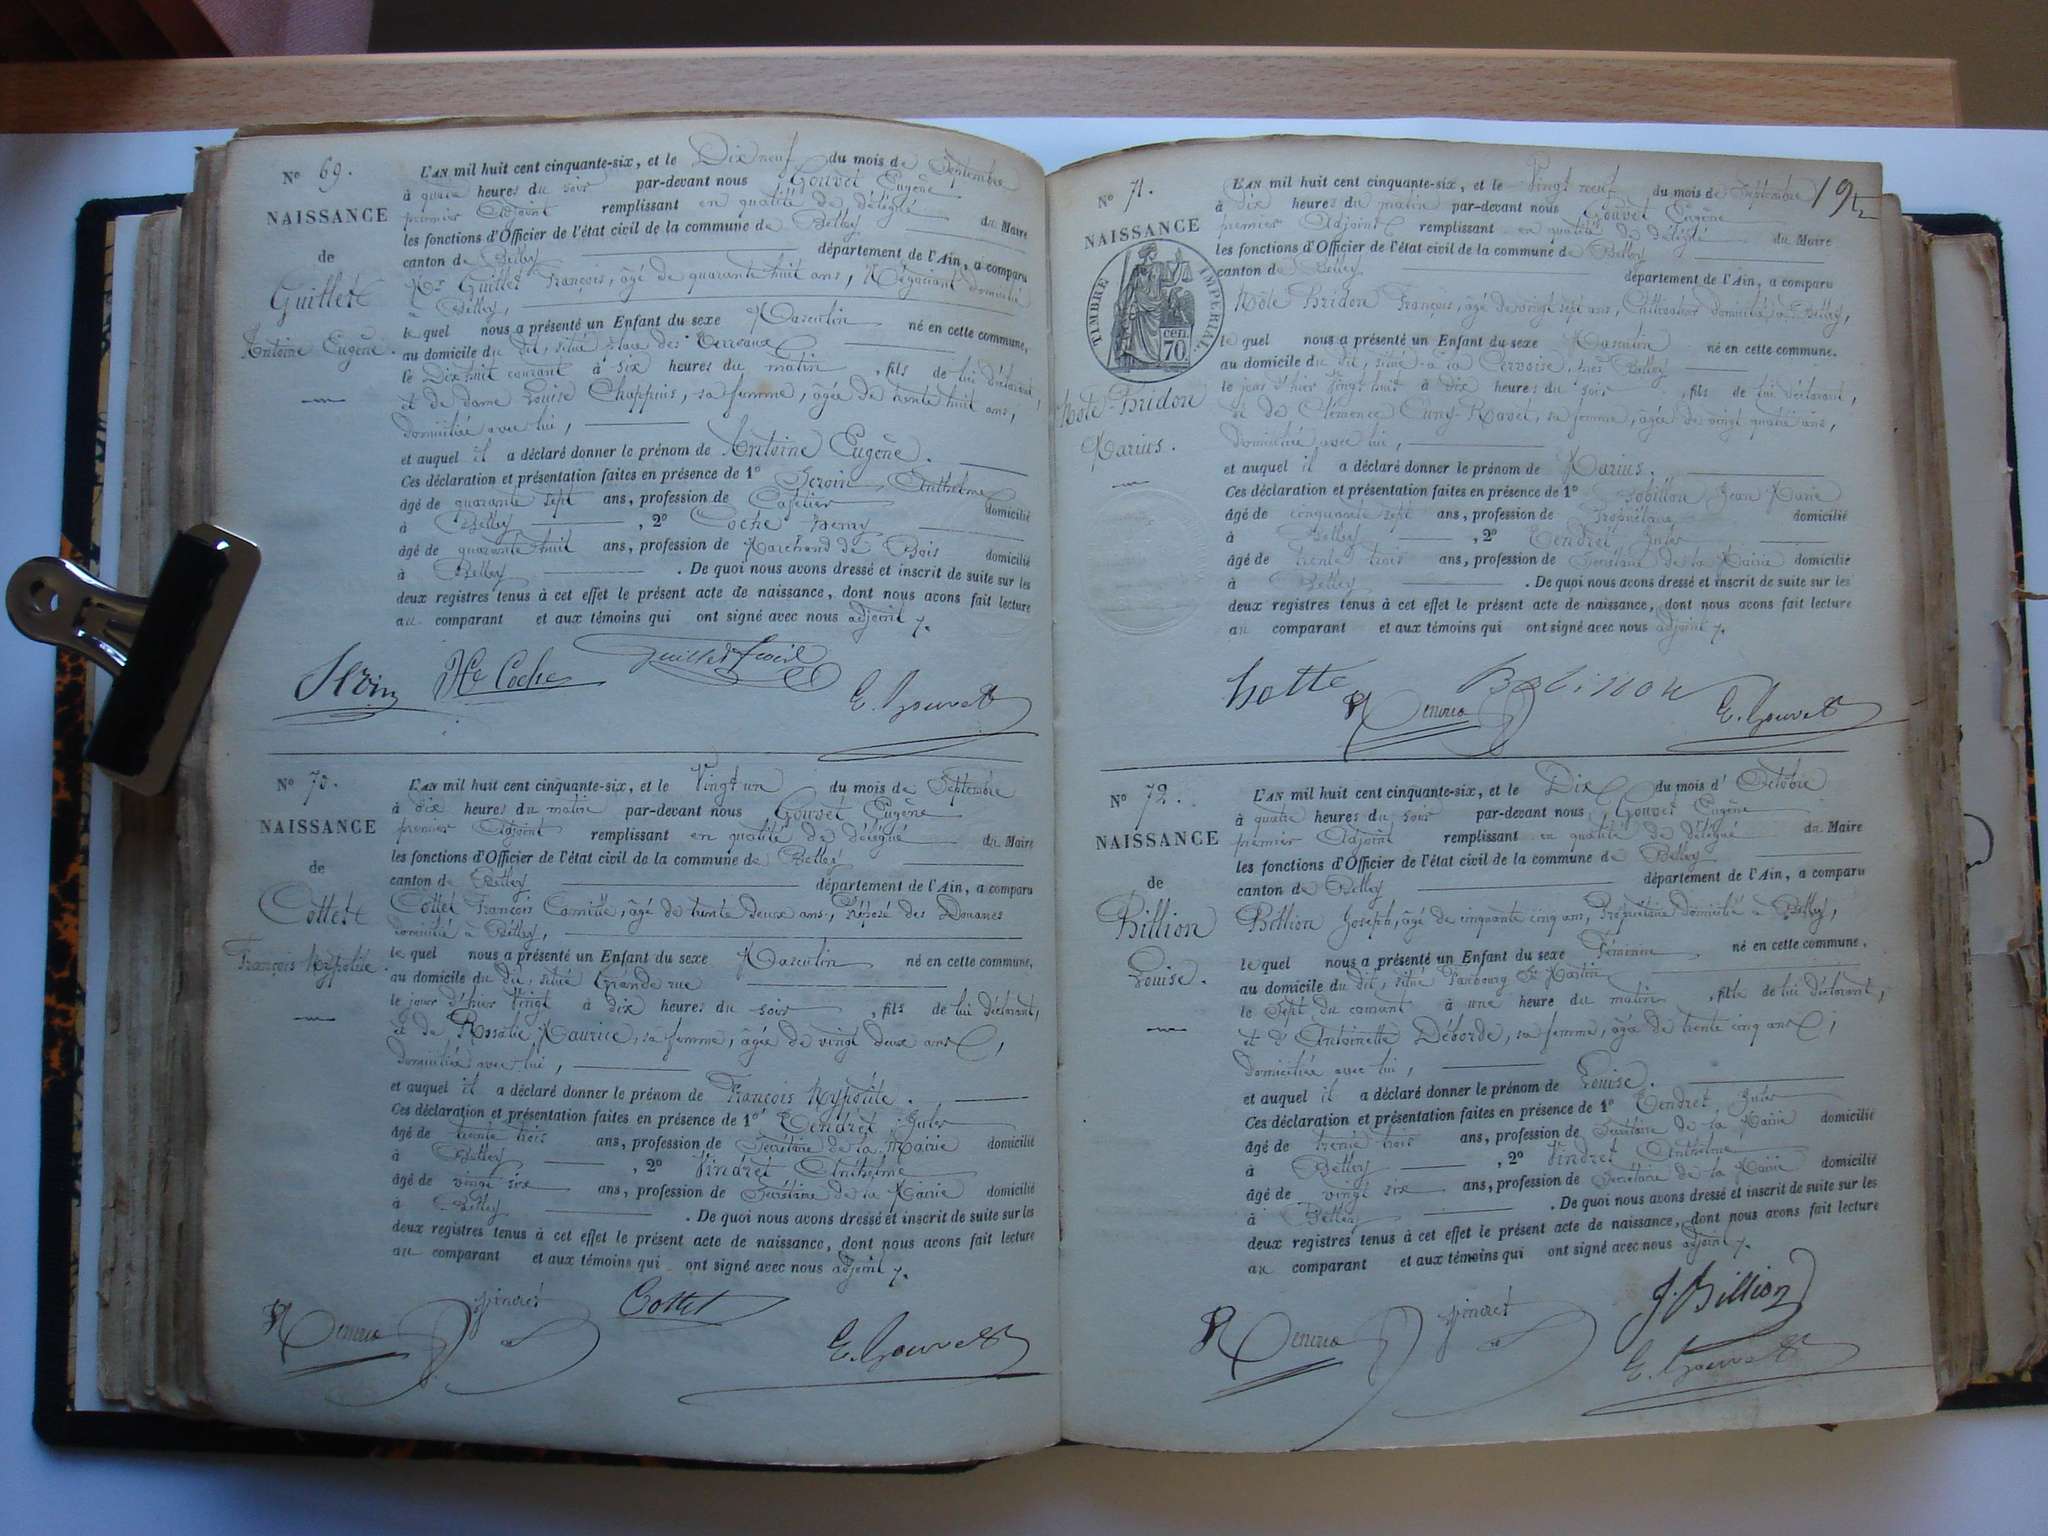 N° 69.
NAISSANCE
de
Guillet
Antoine Eugène.
L'AN mil huit cent cinquante-six, et le Dix neuf du mois de Septembre
à quatre heures du soir par-devant nous Gouvet Eugène
premier Adjoint remplissant en qualité de délégué du Maire
les fonctions d'Officier de l'état civil de la commune de Belley
canton de Belley département de l'Ain, a comparu
Mr Guillet François, âgé de quarante huit ans, Négociant domicilié
à Belley,
le quel nous a présenté un Enfant du sexe Masculin né en cette commune,
au domicile du dit, situé place des Terreaux
le Dix huit courant à six heures du matin, fils de lui déclarant,
et de dame Louise Chappuis, sa femme, âgée de trente huit ans,
domiciliée avec lui,
et auquel il a déclaré donner le prénom de Antoine Eugène.
Ces déclaration et présentation faites en présence de 1° Anthelme
âgé de quarante sept ans, profession de Cafetier domicilié
à Belley, 2° Coche Henry
âgé de quarante huit ans, profession de Marchand de Bois domicilié
à Belley. De quoi nous avons dressé et inscrit de suite sur les
deux registres tenus à cet effet le présent acte de naissance, dont nous avons fait lecture
au comparant et aux témoins qui ont signé avec nous adjoint
Hy Coche Guillet
E. Gouvet
N° 70.
NAISSANCE
de
Cottet
François Hyppolite
L'AN mil huit cent cinquante-six, et le Vingt un du mois de Septembre
à dix heures du matin par-devant nous Gouvet Eugène
premier Adjoint remplissant en qualité de délégué du Maire
les fonctions d'Officier de l'état civil de la commune de Belley
canton de Belley département de l'Ain, a comparu
Cottet François Camille, âgé de trente deux ans, Préposé des Douanes
domicilié à Belley,
le quel nous a présenté un Enfant du sexe Masculin né en cette commune,
au domicile du dit, situé Grande rue
le jour d'hier Vingt à dix heures du soir, fils de lui déclarant,
et de Rosalie Maurice, sa femme, âgée de vingt deux ans,
domiciliée avec lui,
et auquel il a déclaré donner le prénom de François Hyppolite.
Ces déclaration et présentation faites en présence de 1° Tendret Jules
âgé de trente trois ans, profession de Secrétaire de la Mairie domicilié
à Belley, 2° Vindret Anthelme
âgé de vingt six ans, profession de Secrétaire de la Mairie domicilié
à Belley. De quoi nous avons dressé et inscrit de suite sur les
deux registres tenus à cet effet le présent acte de naissance, dont nous avons fait lecture
au comparant et aux témoins qui ont signé avec nous adjoint
Vindret Cottet
E. Gouvet
N° 71.
NAISSANCE
TIMBRE IMPERIAL
cen
70
Hôte-Bridon
Marius.
L'AN mil huit cent cinquante-six, et le Vingt neuf du mois de Septembre
à dix heures du matin par-devant nous Gouvet Eugène
premier Adjoint remplissant en qualité de délégué du Maire
les fonctions d'Officier de l'état civil de la commune de Belley
canton de Belley département de l'Ain, a comparu
Hôte Bridon François, âgé de vingt sept ans, Cultivateur domicilié à Belley,
le quel nous a présenté un Enfant du sexe Masculin né en cette commune.
au domicile du dit, situé à la Cervoise, Belley
le jour d'hier Vingt huit à dix heures du soir, fils de lui déclarant,
et de Clémence Cuny-Ravet, sa femme, âgée de vingt quatre ans,
domiciliée avec lui,
et auquel il a déclaré donner le prénom de Marius.
Ces déclaration et présentation faites en présence de 1° Jean Marie
âgé de cinquante sept ans, profession de Propriétaire domicilié
à Belley, 2° Tendret Jules
âgé de trente trois ans, profession de Secrétaire de la Mairie domicilié
à Belley. De quoi nous avons dressé et inscrit de suite sur les
deux registres tenus à cet effet le présent acte de naissance, dont nous avons fait lecture
au comparant et aux témoins qui ont signé avec nous adjoint
hotte
E. Gouvet
N° 72.
NAISSANCE
de
Billion
Louise.
L'AN mil huit cent cinquante-six, et le Dix du mois d'Octobre
à quatre heures du soir par-devant nous Gouvet Eugène
premier Adjoint remplissant en qualité de délégué du Maire
les fonctions d'Officier de l'état civil de la commune de Belley
canton de Belley département de l'Ain, a comparu
Billion Joseph, âgé de cinquante cinq ans, Propriétaire domicilié à Belley,
le quel nous a présenté un Enfant du sexe Féminin né en cette commune,
au domicile du dit, situé Faubourg St Martin
le Sept du courant à une heure du matin, fille de lui déclarant,
et d'Antoinette Déborde, sa femme, âgée de trente cinq ans,
domiciliée avec lui,
et auquel il a déclaré donner le prénom de Louise.
Ces déclaration et présentation faites en présence de 1° Tendret Jules
âgé de trente trois ans, profession de Secrétaire de la Mairie domicilié
à Belley, 2° Vindret Anthelme
âgé de vingt six ans, profession de Secrétaire de la Mairie domicilié
à Belley. De quoi nous avons dressé et inscrit de suite sur les
deux registres tenus à cet effet le présent acte de naissance, dont nous avons fait lecture
au comparant et aux témoins qui ont signé avec nous adjoint
Vindret J. Billion
E. Gouvet